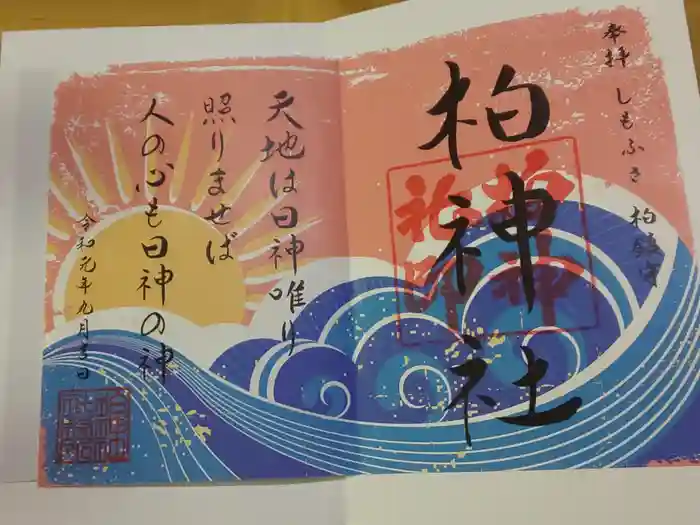 奉拝 しもふさ 柏鎮守
柏神社
天地は日神唯り
照りませば
人の心も日神の神
令和元年九月吉日